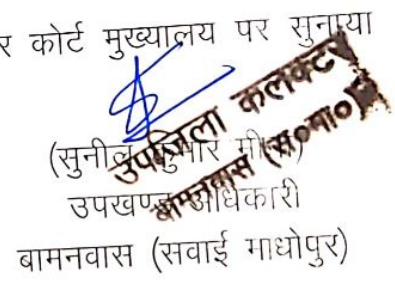 र कोर्ट मुख्यालय पर सुनाया
(सुनील कुमार मीना)
उपखण्ड अधिकारी
बामनवास (सवाई माधोपुर)
उपजिला कलक्टर
बामनवास (स०मा०)